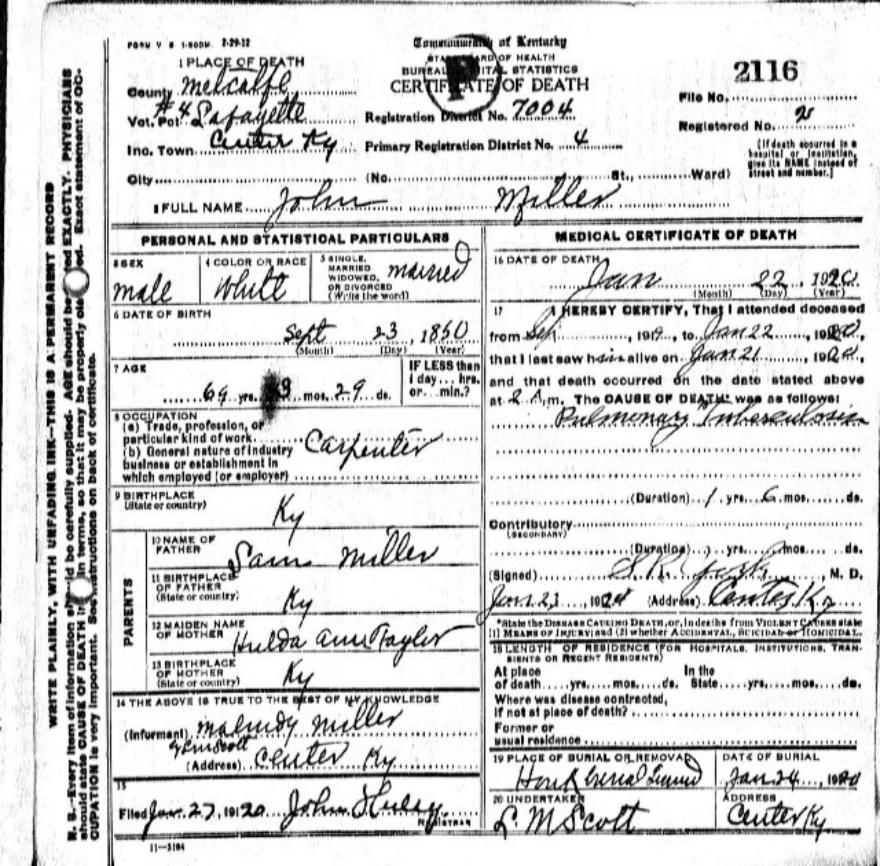 FORM V S 1-500M. 2-29-12
Commonwealth of Kentucky
STATE BOARD OF HEALTH
BUREAU OF VITAL STATISTICS
CERTIFICATE OF DEATH
2116
1 PLACE OF DEATH
County Metcalfe
Vot. Pct. #4 Lafayette
Inc. Town Center Ky
City
Registration District No. 7004
Primary Registration District No. 4
(No. St., Ward)
File No.
Registered No. 2
[If death occurred in a hospital or institution, give its NAME instead of street and number.]
2 FULL NAME John Miller
PERSONAL AND STATISTICAL PARTICULARS
3 SEX
male
4 COLOR OR RACE
White
5 SINGLE, MARRIED WIDOWED, OR DIVORCED (Write the word)
married
6 DATE OF BIRTH
Sept 23, 1850
(Month) (Day) (Year)
7 AGE
69 yrs. 3 mos. 29 ds.
IF LESS than 1 day... hrs. or... min.?
8 OCCUPATION
(a) Trade, profession, or
particular kind of work Carpenter
(b) General nature of industry
business or establishment in
which employed (or employer)
9 BIRTHPLACE
(State or country)
Ky
PARENTS
10 NAME OF FATHER
Sam Miller
11 BIRTHPLACE OF FATHER
(State or country)
Ky
12 MAIDEN NAME OF MOTHER
Hulda Ann Taylor
13 BIRTHPLACE OF MOTHER
(State or country)
Ky
14 THE ABOVE IS TRUE TO THE BEST OF MY KNOWLEDGE
(Informant) Miller
(Address) Center Ky
15
Filed Jan. 27, 1920 John
REGISTRAR
11—3184
MEDICAL CERTIFICATE OF DEATH
16 DATE OF DEATH
Jan 22, 1920
(Month) (Day) (Year)
17 I HEREBY CERTIFY, That I attended deceased
from Sep, 1919, to Jan 22, 1920,
that I last saw him alive on Jan 21, 1920,
and that death occurred on the date stated above
at 2 A.m. The CAUSE OF DEATH* was as follows:
Pulmonary Tuberculosis
(Duration) 1 yrs. 6 mos. ds.
Contributory
(SECONDARY)
(Duration) yrs. mos. ds.
(Signed) S. R. York, M. D.
Jan 23, 192 (Address) Center Ky
*State the DISEASE CAUSING DEATH, or, in deaths from VIOLENT CAUSES state
(1) MEANS OF INJURY; and (2) whether ACCIDENTAL, SUICIDAL or HOMICIDAL.
18 LENGTH OF RESIDENCE (FOR HOSPITALS, INSTITUTIONS, TRANSIENTS OR RECENT RESIDENTS)
At place of death yrs. mos. ds. In the State yrs. mos. ds.
Where was disease contracted,
if not at place of death?
Former or
usual residence
19 PLACE OF BURIAL OR REMOVAL
DATE OF BURIAL
Jan 24, 1920
20 UNDERTAKER
L M Scott
ADDRESS
Center Ky
WRITE PLAINLY, WITH UNFADING INK—THIS IS A PERMANENT RECORD
N. B.—Every item of information should be carefully supplied. AGE should be stated EXACTLY. PHYSICIANS
should state CAUSE OF DEATH in terms, so that it may be properly classified. Exact statement of OC-
CUPATION is very important. See instructions on back of certificate.